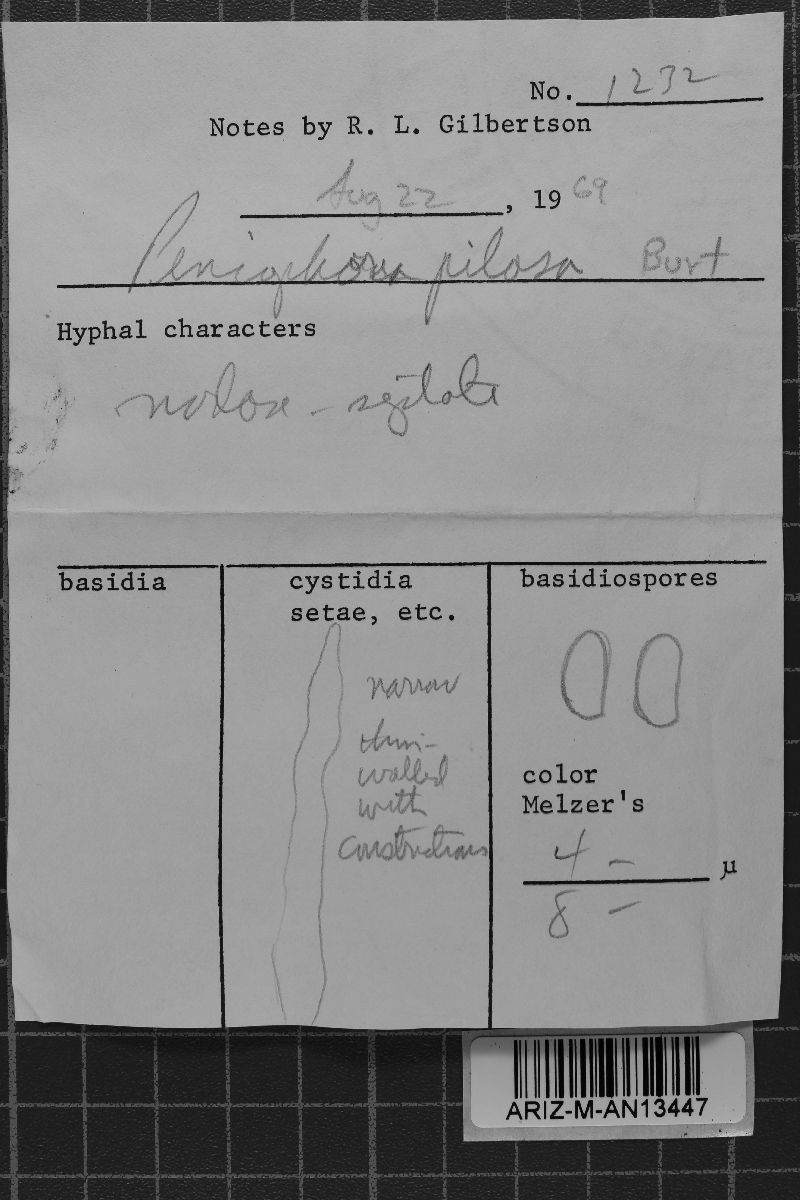 No. 1232
Notes by R. L. Gilbertson
Aug 22, 19 69
Peniophora pilosa Burt
Hyphal characters
nodose-septate
basidia
cystidia
setae, etc.
narrow
thin-
walled
with
constrictions
basidiospores
color
Melzer's
4 - µ
8 -
ARIZ-M-AN13447